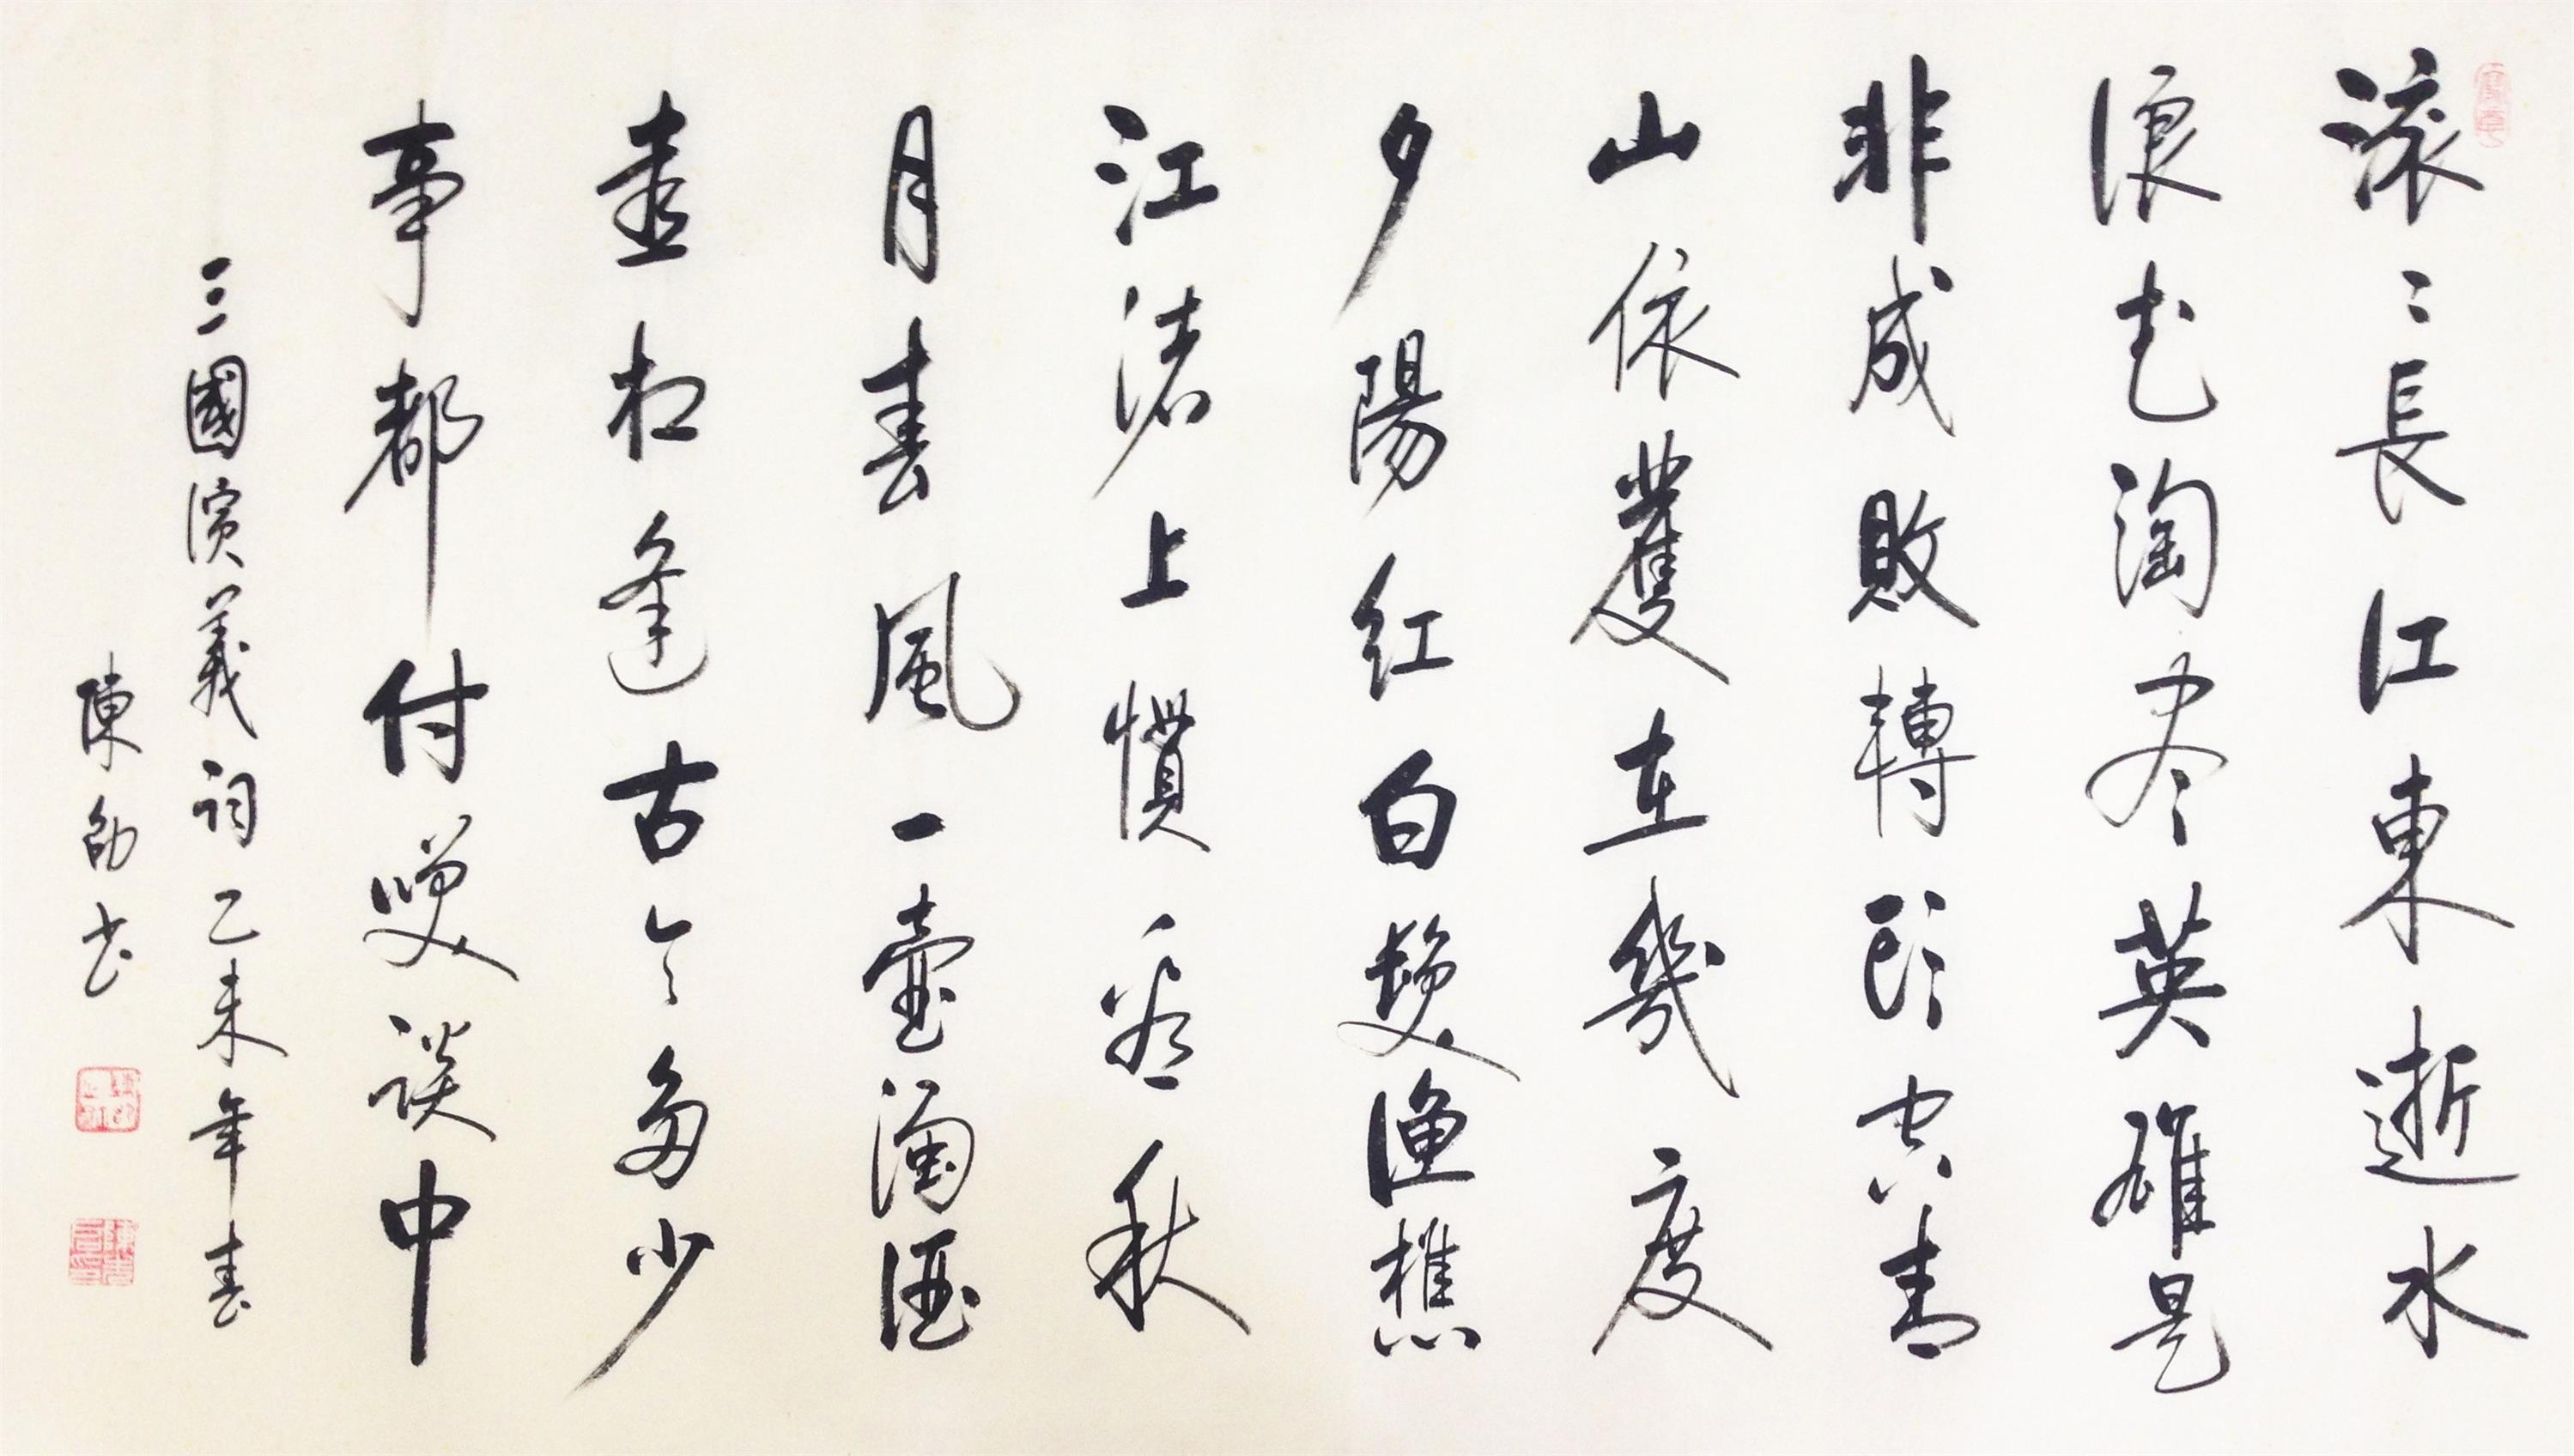 滚〻長江東逝水
浪花淘尽英雄是
非成敗轉頭空青
山依舊在幾度
夕陽紅白髮渔樵
江渚上慣看秋
月春風一壺濁酒
喜相逢古今多少
事都付笑談中
三國演義词乙未年春
陳
书